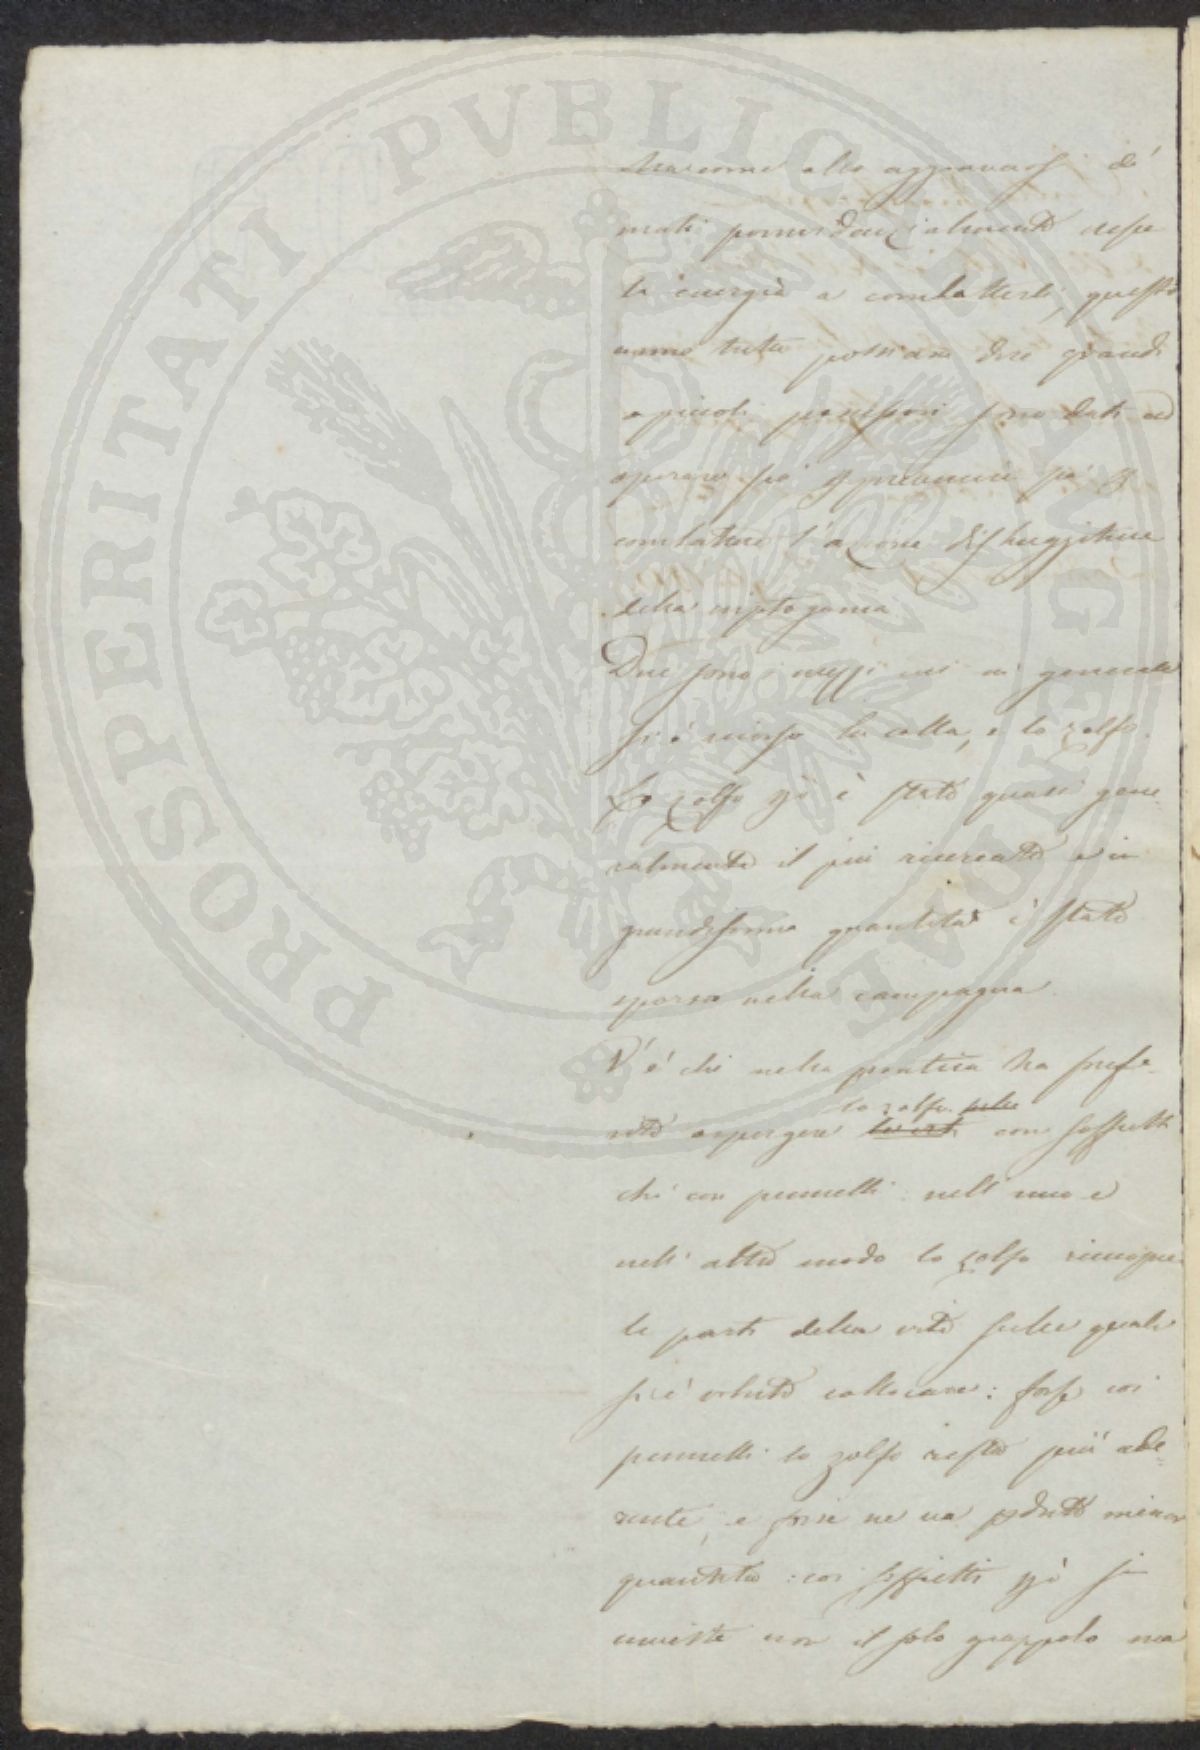 PROSPERITATI PVBLICAE AVGENDAE
Ma come allo aggravarsi de'
mali provvidenzialmente cresce
la energia a combatterli, questo
anno tutti possiam dire grandi
e piccoli possessori sono dati ad
operare
combattere l'azione distruggitrice
della criptogama
Due sono i mezzi cui in generale
si è ricorso la colla, e lo zolfo.
Lo zolfo però è stato quasi gene
ralmente il più ricercato e in
grandissima quantità è stato
sparso nella campagna.
V'è chi nella pratica ha prefe
rito aspergere lo zolfo con soffietti
chi con pennelli: nell'uno e
nell'altro modo lo zolfo riempie
le parti della vite sulle quali
si è voluto collocare: forse coi
pennelli lo zolfo resta più ade-
rente, e forse ne va perduto minor
quantità: coi soffietti però si
investe non il solo grappolo ma